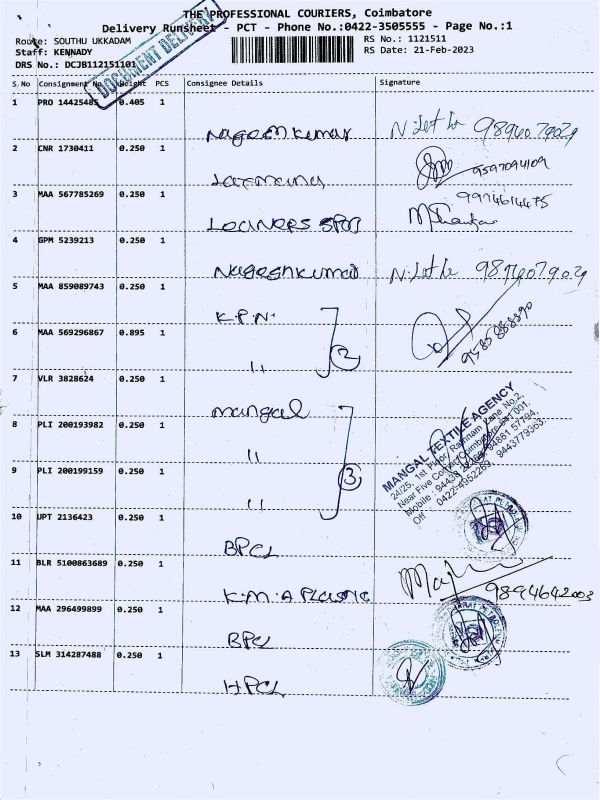 THE PROFESSIONAL COURIERS, Coimbatore
Delivery Runsheet - PCT - Phone No.:0422-3505555 - Page No.:1
Route: SOUTHU UKKADAM RS No.: 1121511
Staff: KENNADY RS Date: 21-Feb-2023
DRS No.: DCJB112151101
DOCUMENT DELIVERY
S No Consignment No Weight PCS Consignee Details Signature
1 PRO 14425485 0.405 1
Nageshkumar 9894607902
2 CNR 1730411 0.250 1
Laxmana 9597094109
3 MAA 567785269 0.250 1
9974614475
4 GPM 5239213 0.250 1
Nageshkumar
5 MAA 859089743 0.250 1
K.P.N. 9585888390
6 MAA 569296867 0.895 1
" 2
7 VLR 3828624 0.250 1
Mangal
8 PLI 200193982 0.250 1
"
MANGAL TEXTILE AGENCY
24/25, 1st Floor,
Near Five Corner, Coimbatore-641 001.
Mobile : 94433
Off : 0422-4952269, 9443779363
9 PLI 200199159 0.250 1
" 3
10 UPT 2136423 0.250 1
BPCL
11 BLR 5100863689 0.250 1
K.M.A Plastic 9894642003
12 MAA 296499899 0.250 1
BPCL
13 SLM 314287488 0.250 1
HPCL